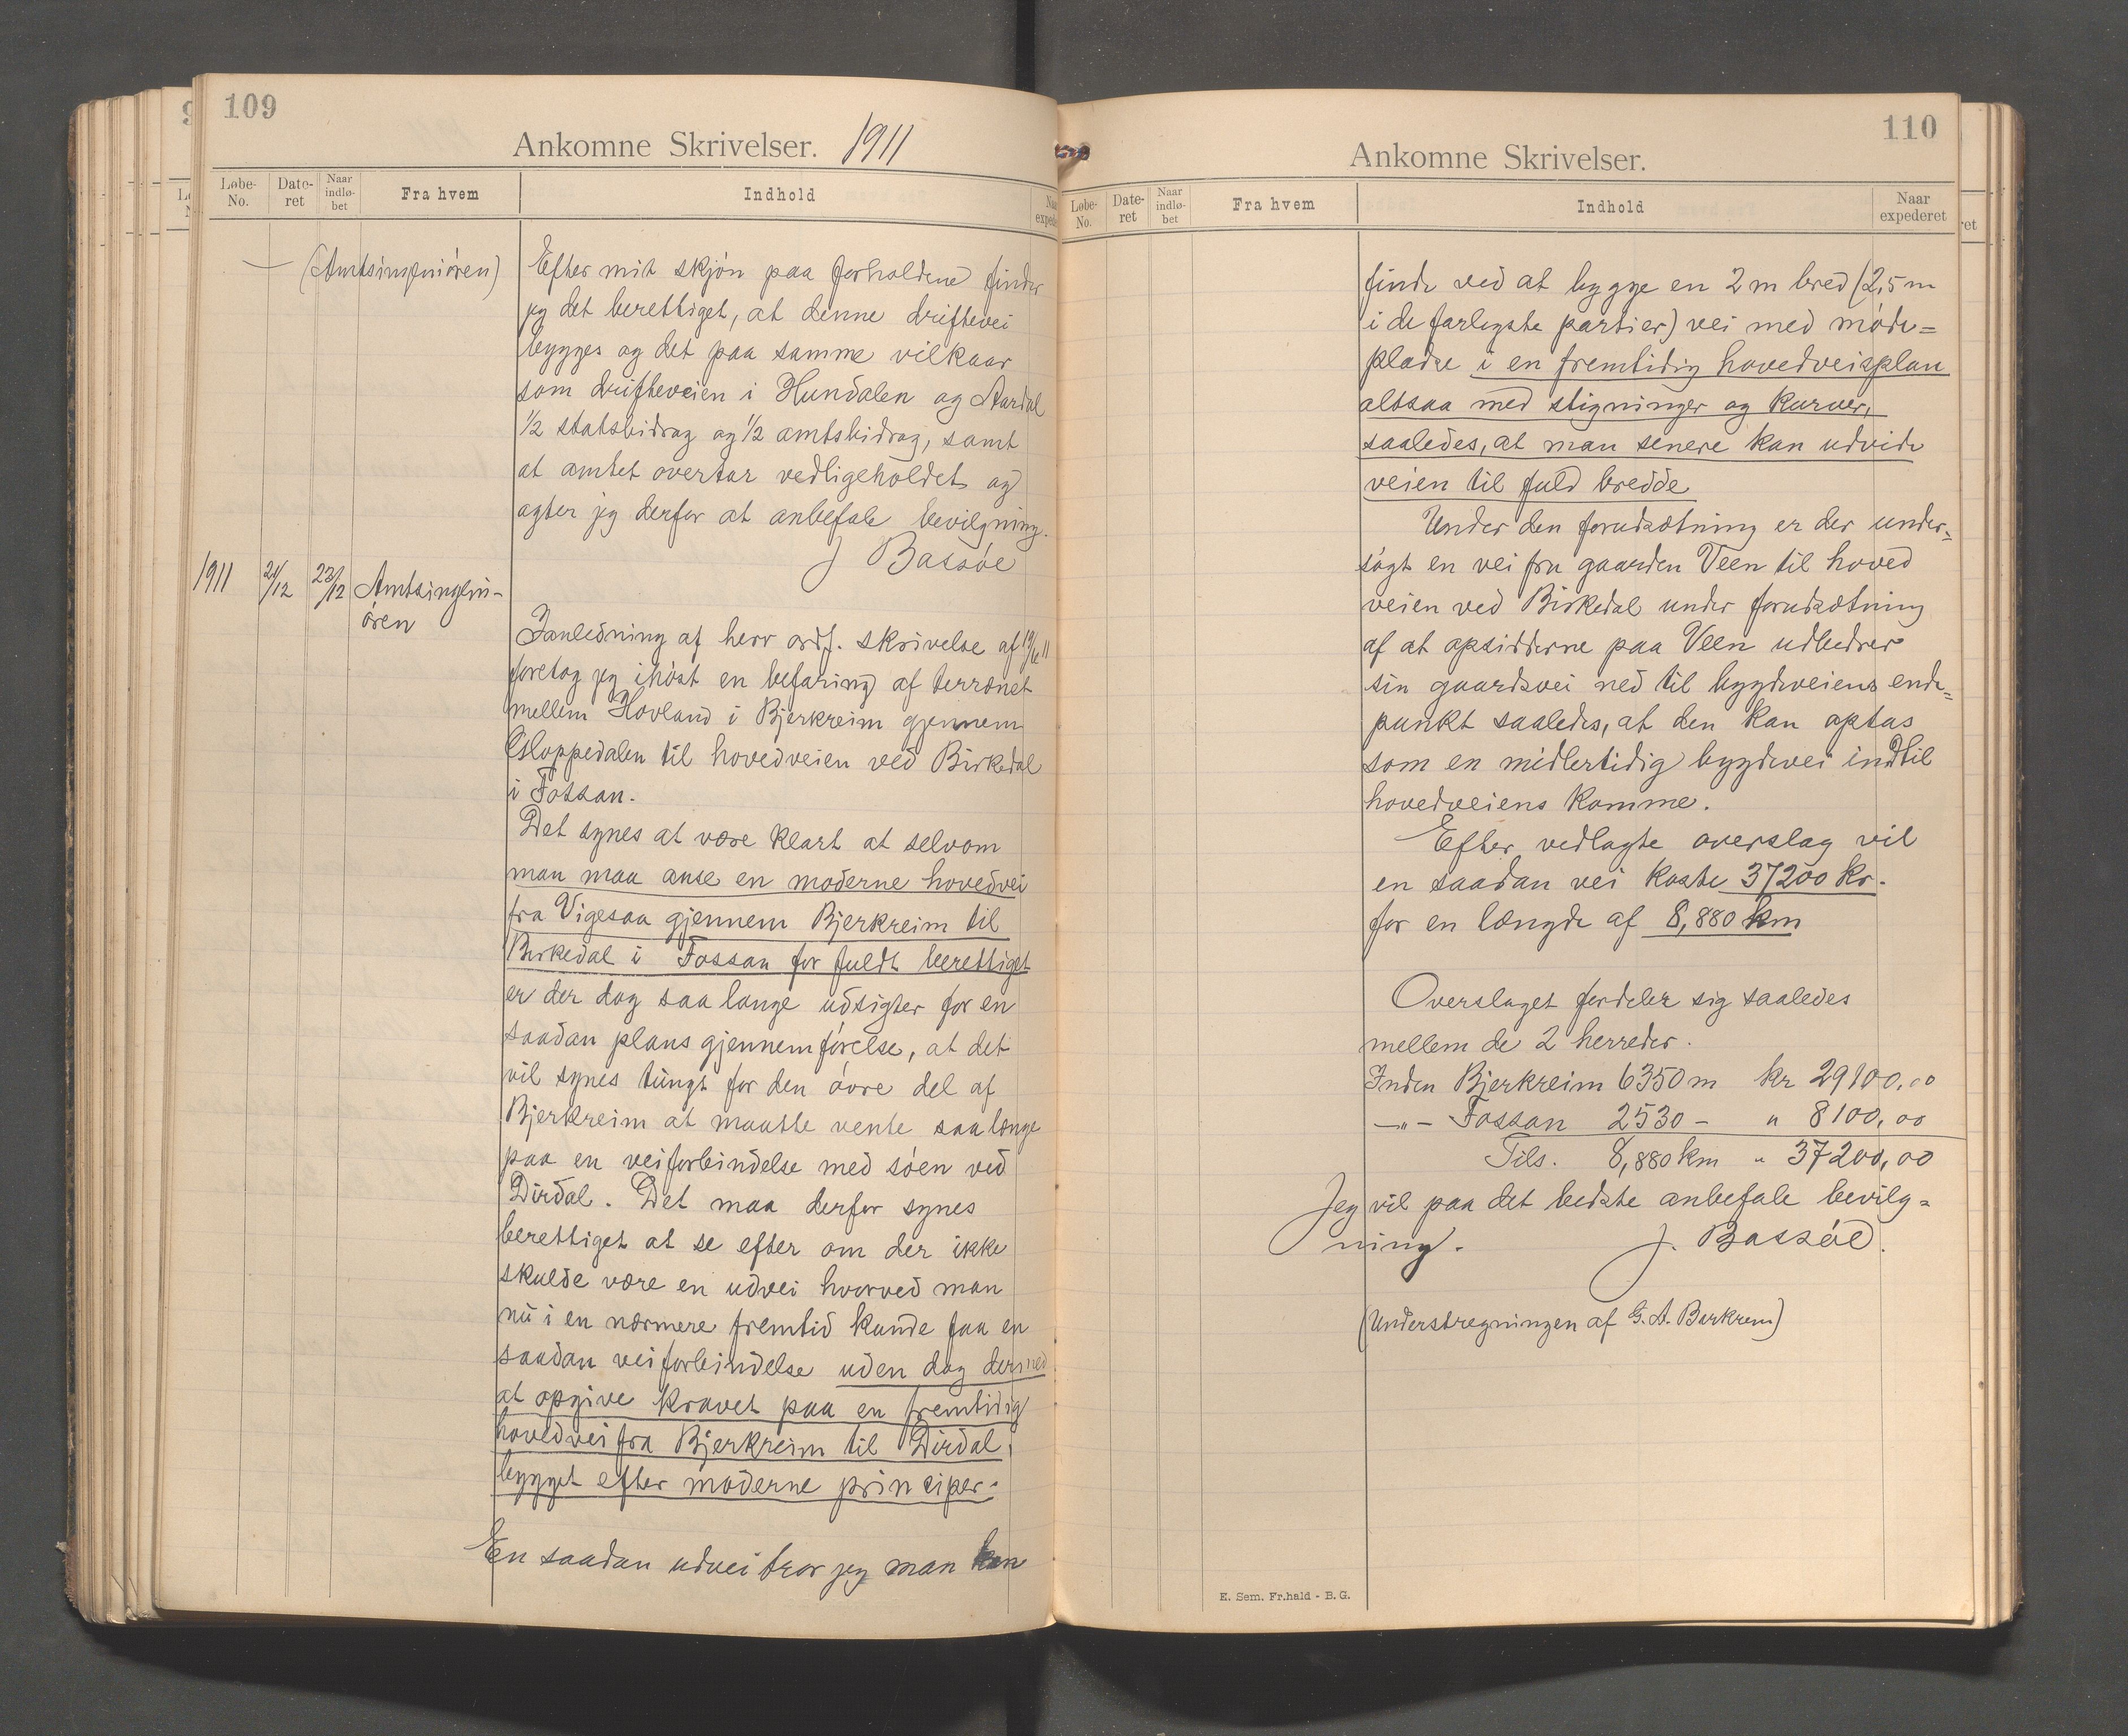 109
Ankomne Skrivelser. 1911
Løbe-No. Date-ret Naar indlø-bet Fra hvem Indhold
(Amtsingeniören) Efter mit skjön paa forholdene finder
jeg det berettiget, at denne driftevei
bygges og det paa samme vilkaar
som drifteveien i Hundalen og Aardal
1/2 statsbidrag og 1/2 amtsbidrag, samt
at amtet overtar vedligeholdet og
agter jeg derfor at anbefale bevilgning.
J Bassöe
1911 21/12 23/12 Amtsingeni-
ören
Ianledning af herr ordf. skrivelse af 19/6 11
foretog jeg ihöst en befaring af terrænet
mellem Hovland i Bjerkreim gjennem
Gloppedalen til hovedveien ved Birkedal
i Fossan.
Det synes at være klart at selvom
man maa anse en moderne hovedvei
fra Vigesaa gjennem Bjerkreim til
Birkedal i Fossan for fuldt berettiget
er der dog saa lange udsigter for en
saadan plans gjennemförelse, at det
vil synes tungt for den övre del af
Bjerkreim at maatte vente saa længe
paa en veiforbindelse med söen ved
Dirdal. Det maa derfor synes
berettiget at se efter om der ikke
skulde være en udvei hvorved man
nu i en nærmere fremtid kunde faa en
saadan veiforbindelse uden dog dermed
at opgive kravet paa en fremtidig
hovedvei fra Bjerkreim til Dirdal,
bygget efter moderne principer.
En saadan udvei tror jeg man kan
110
Ankomne Skrivelser.
Løbe-No. Date-ret Naar indlø-bet Fra hvem Indhold Naar expederet
finde ved at bygge en 2 m bred (2,5 m
i de farligste partier) vei med möde=
pladse i en fremtidig hovedveisplan
altsaa med stigninger og kurver,
saaledes, at man senere kan udvide
veien til fuld bredde
Under den forudsætning er der under=
sögt en vei fra gaarden Veen til hoved
veien ved Birkedal under forudsætning
af at opsidderne paa Veen udbedrer
sin gaardsvei ned til bygdeveiens ende=
punkt saaledes, at den kan optas
som en midlertidig bygdevei indtil
hovedveiens komme.
Efter vedlagte overslag vil
en saadan vei koste 37200 kr.
for en længde af 8,880 km
Overslaget fordeler sig saaledes
mellem de 2 herreder.
Inden Bjerkreim 6350 m kr 29100,00
-"- Fossan 2530 - " 8100,00
Tils. 8,880 km " 37200,00
Jeg vil paa det bedste anbefale bevilg=
ning. J. Bassöe.
(Understregningen af G. A. Barkrem)
E. Sem. Fr.hald - B. G.